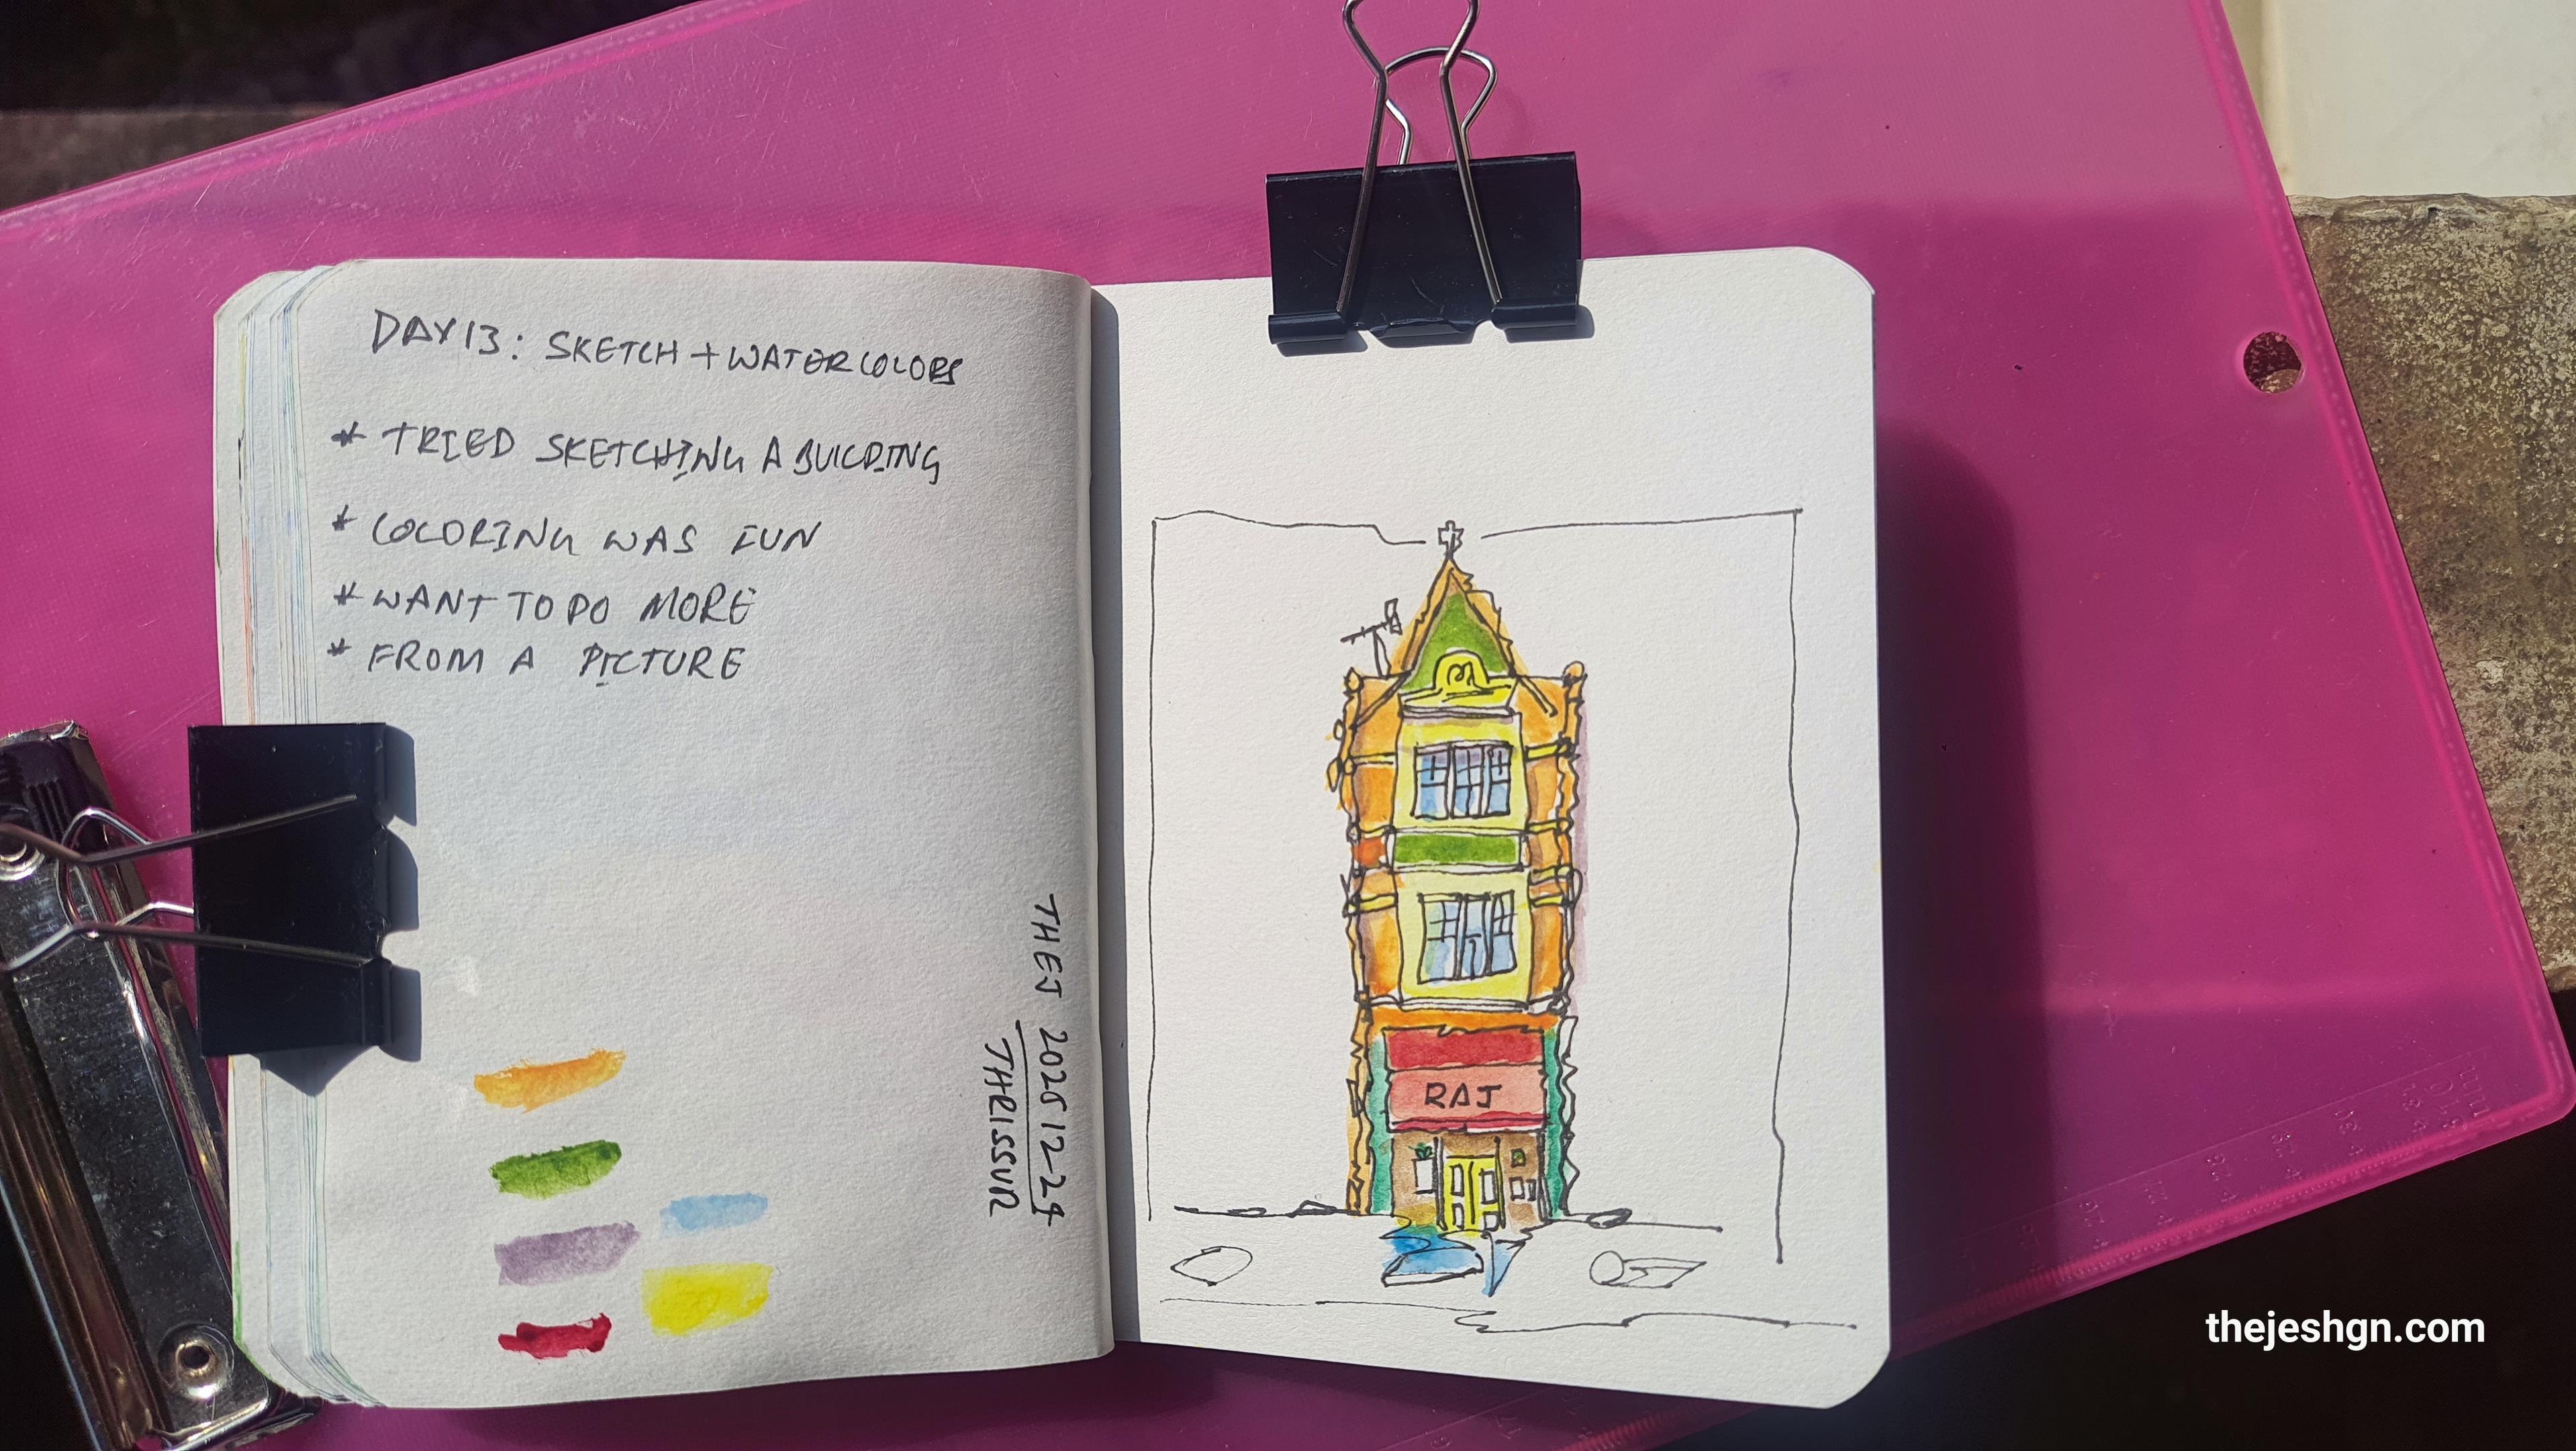 DAY 13: SKETCH + WATERCOLORS
* TRIED SKETCHING A BUILDING
* COLORING WAS FUN
* WANT TO DO MORE
* FROM A PICTURE
THEJ 2025-12-24
THRISSUR
RAJ
thejeshgn.com